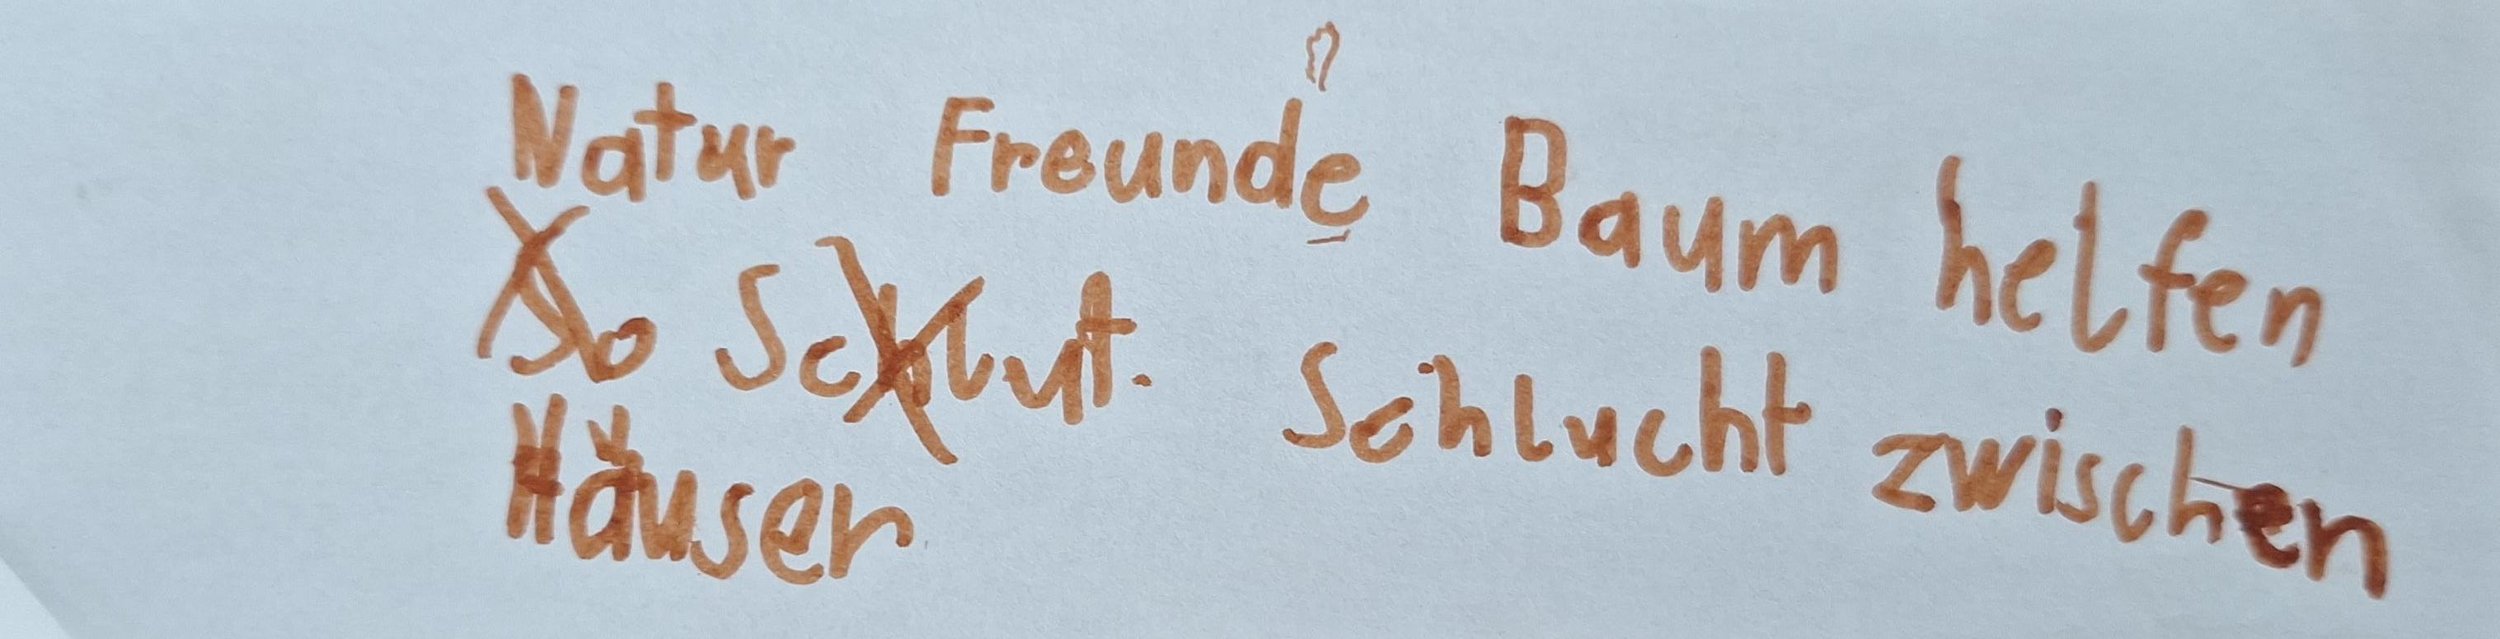 Natur Freunde Baum helfen
So Schlut. Schlucht zwischen
Häuser